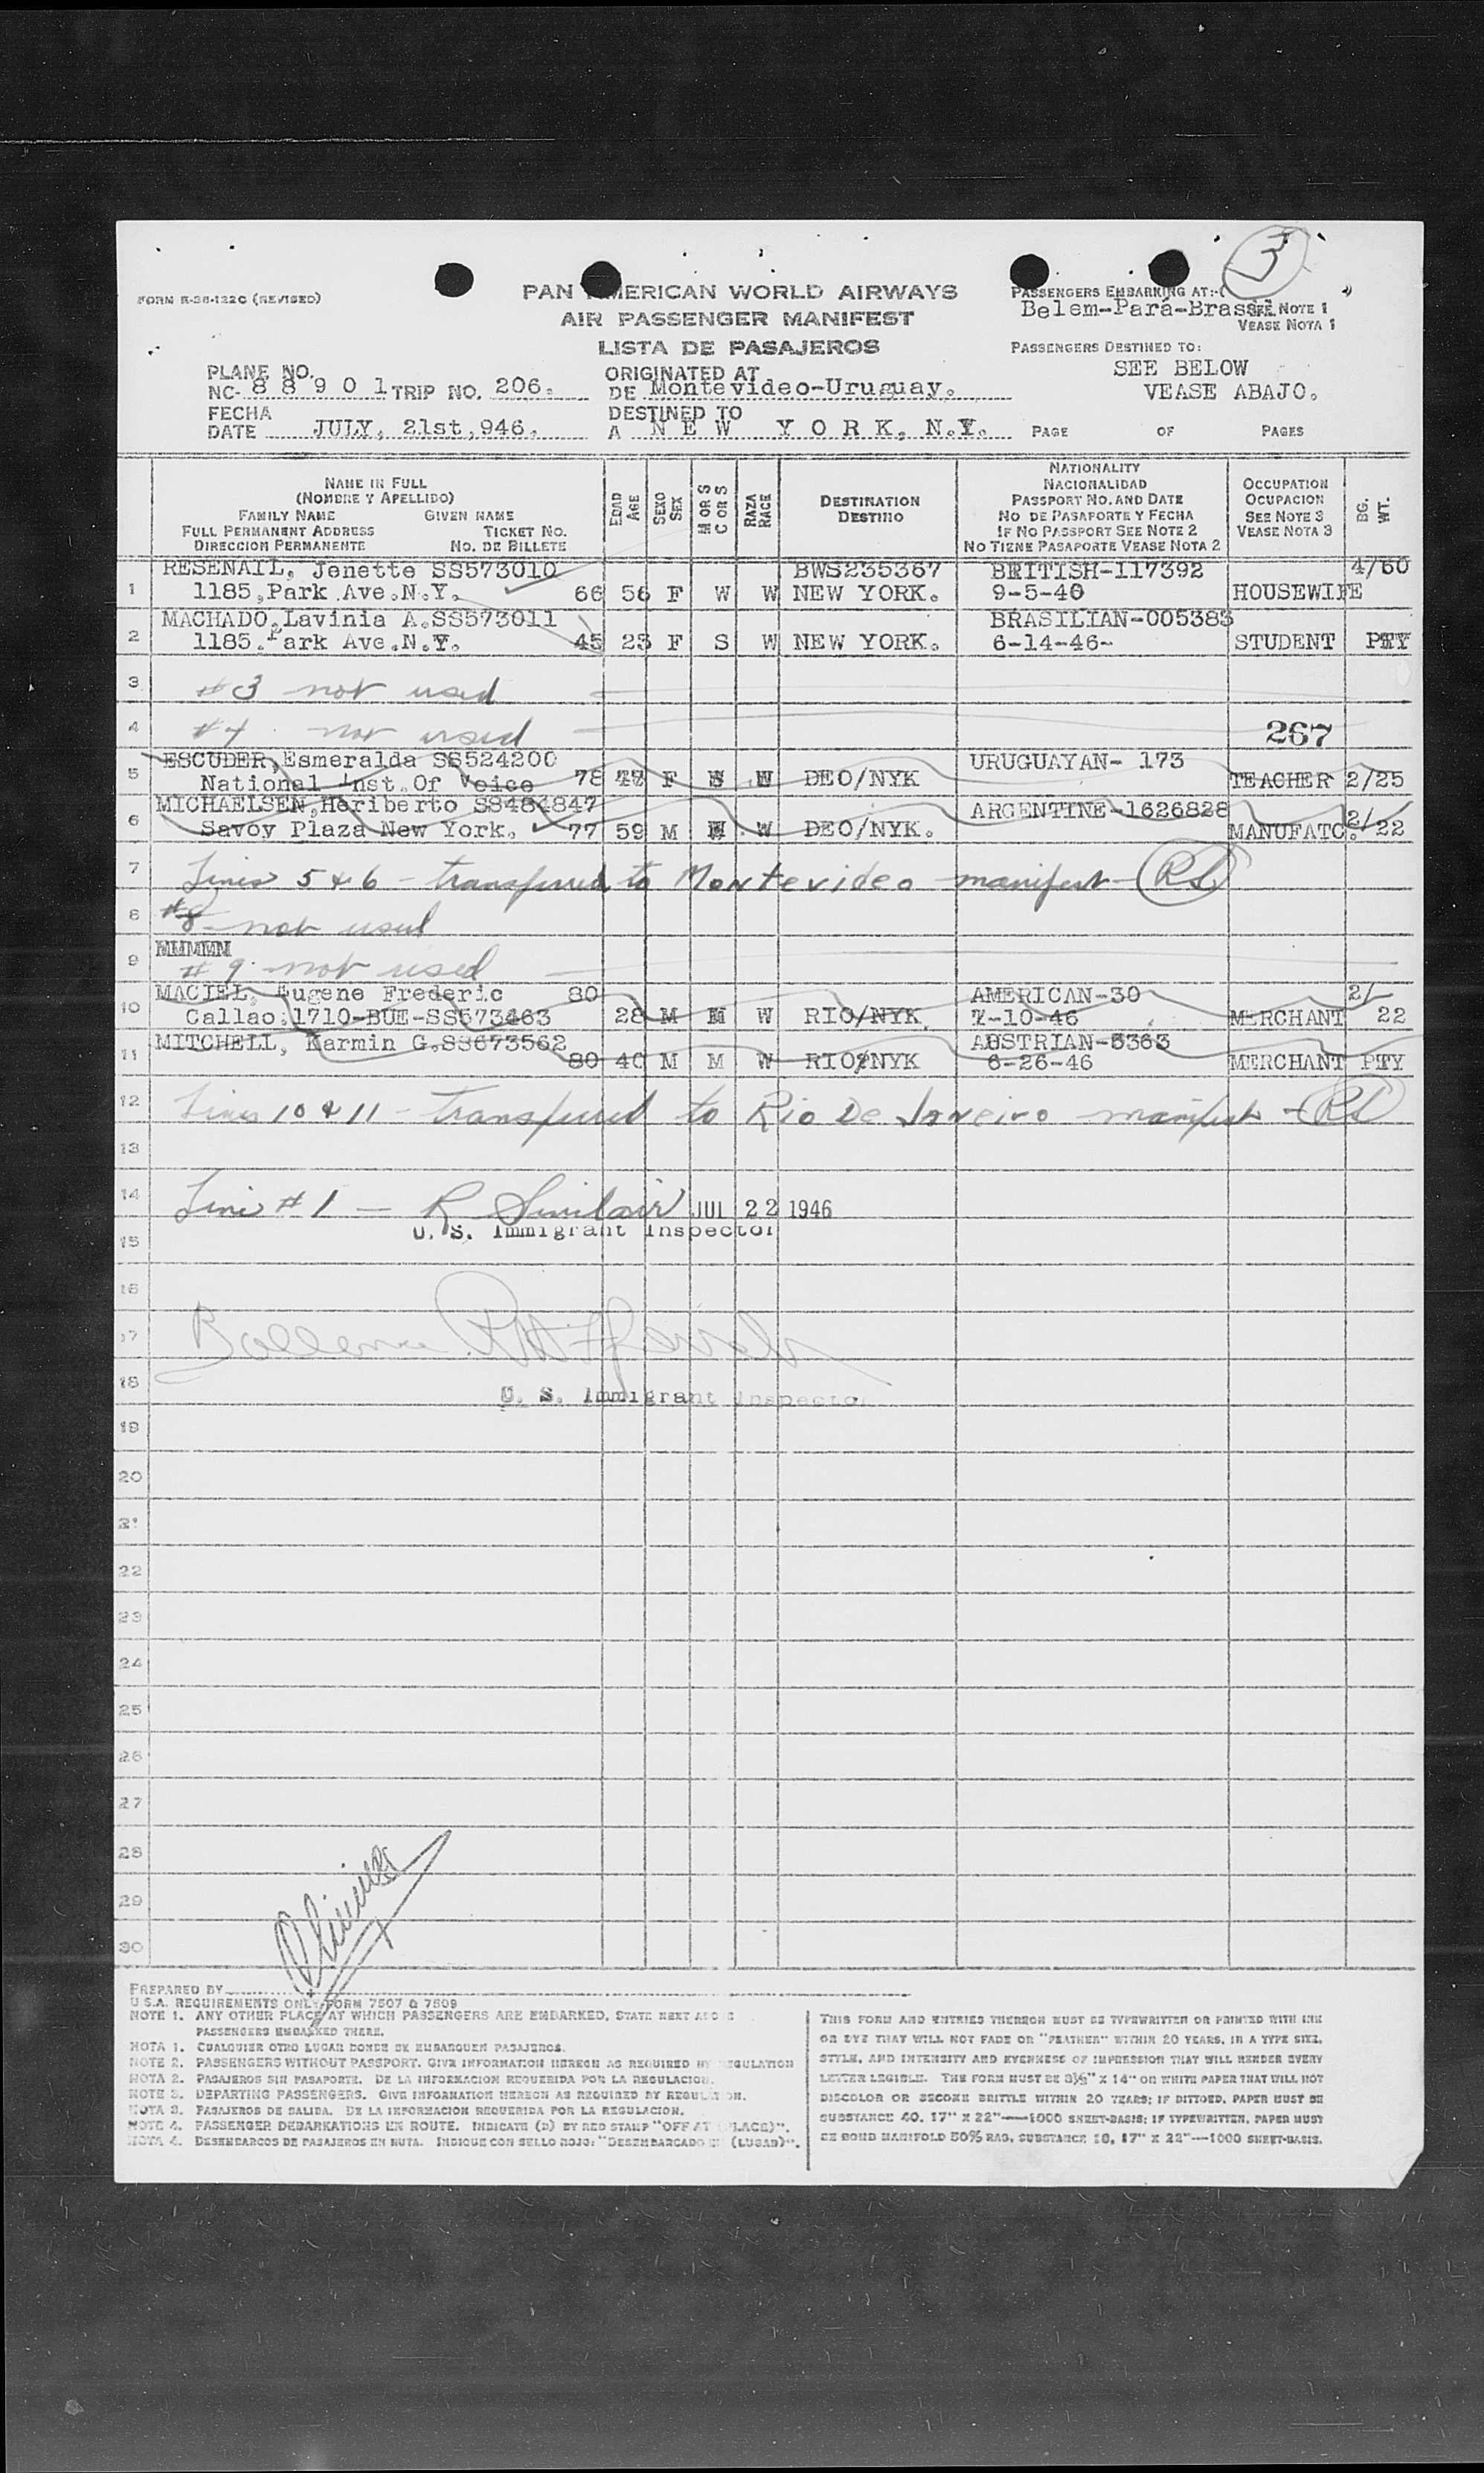 3
FORM R-38-122C (REVISED)
PAN AMERICAN WORLD AIRWAYS
AIR PASSENGER MANIFEST
LISTA DE PASAJEROS
PASSENGERS EMBARKING AT:-(
Belem-Pará-Brasil
SEE NOTE 1
VEASE NOTA 1
PASSENGERS DESTINED TO:
SEE BELOW
VEASE ABAJO.
PLANE NO.
NC- 8 8 9 0 1 TRIP NO. 206.
ORIGINATED AT
DE Montevideo-Uruguay.
FECHA
DATE JULY, 21st,946.
DESTINED TO
A N E W Y O R K, N.Y.
PAGE OF PAGES
NAME IN FULL
(NOMBRE Y APELLIDO)
FAMILY NAME GIVEN NAME
FULL PERMANENT ADDRESS TICKET NO.
DIRECCION PERMANENTE NO. DE BILLETE
EDAD
AGE
SEXO
SEX
M OR S
C OR S
RAZA
RACE
DESTINATION
DESTINO
NATIONALITY
NACIONALIDAD
PASSPORT NO. AND DATE
NO DE PASAPORTE Y FECHA
IF NO PASSPORT SEE NOTE 2
NO TIENE PASAPORTE VEASE NOTA 2
OCCUPATION
OCUPACION
SEE NOTE 3
VEASE NOTA 3
BG.
WT.
RESENAIL, Jenette SS573010 BWS235367 BRITISH-117392 4/60
1 1185,Park Ave.N.Y. 66 56 F W W NEW YORK. 9-5-40 HOUSEWIFE
MACHADO,Lavinia A.SS573011 BRASILIAN-005383
2 1185.Park Ave.N.Y. 45 23 F S W NEW YORK. 6-14-46- STUDENT PTY
3 #3 not used
4 #4 not used 267
ESCUDER,Esmeralda SS524200 URUGUAYAN- 173
5 National Inst.Of Voice 78 F W DEO/NYK TEACHER 2/25
MICHAELSEN,Heriberto SS484847 ARGENTINE-1626828 2/
6 Savoy Plaza New York. 77 59 M W DEO/NYK. MANUFATC. 22
7 Lines 5 & 6 - transferred to Montevideo manifest - RS
8 #8 not used
9 MMMMM
#9 not used
MACIEL, Eugene Frederic 80 AMERICAN-30 2/
10 Callao:1710-BUE-SS573463 28 M M W RIO/NYK. 7-10-46 MERCHANT 22
MITCHELL, Karmin G.SS673562 AUSTRIAN-5363
11 80 40 M M W RIO/NYK 6-26-46 MERCHANT PTY
12 Lines 10 & 11 - transferred to Rio De Janeiro manifest - RS
13
14 Line #1 - R Sinclair JUL 22 1946
15 U. S. Immigrant Inspector
16
17
18 U. S. Immigrant Inspector
19
20
21
22
23
24
25
26
27
28
29
30
PREPARED BY
U.S.A. REQUIREMENTS ONLY FORM 7507 & 7509
NOTE 1. ANY OTHER PLACE AT WHICH PASSENGERS ARE EMBARKED, STATE NEXT ABOVE
PASSENGERS EMBARKED THERE.
NOTA 1. CUALQUIER OTRO LUGAR DONDE SE EMBARQUEN PASAJEROS.
NOTE 2. PASSENGERS WITHOUT PASSPORT. GIVE INFORMATION HEREON AS REQUIRED BY REGULATION
NOTA 2. PASAJEROS SIN PASAPORTE. DE LA INFORMACION REQUERIDA POR LA REGULACION.
NOTE 3. DEPARTING PASSENGERS. GIVE INFORMATION HEREON AS REQUIRED BY REGULATION.
NOTA 3. PASAJEROS DE SALIDA. DE LA INFORMACION REQUERIDA POR LA REGULACION.
NOTE 4. PASSENGER DEBARKATIONS EN ROUTE. INDICATE (B) BY RED STAMP "OFF AT (PLACE)".
NOTA 4. DESEMBARCOS DE PASAJEROS EN RUTA. INDIQUE CON SELLO ROJO: "DESEMBARCADO EN (LUGAR)".
THIS FORM AND ENTRIES THEREON MUST BE TYPEWRITTEN OR PRINTED WITH INK
OR DYE THAT WILL NOT FADE OR "FEATHER" WITHIN 20 YEARS, IN A TYPE SIZE,
STYLE, AND INTENSITY AND EVENNESS OF IMPRESSION THAT WILL RENDER EVERY
LETTER LEGIBLE. THE FORM MUST BE 8½" X 14" ON WHITE PAPER THAT WILL NOT
DISCOLOR OR BECOME BRITTLE WITHIN 20 YEARS; IF DITTOED, PAPER MUST BE
SUBSTANCE 40, 17" X 22"—1000 SHEET-BASIS; IF TYPEWRITTEN, PAPER MUST
BE BOND MANIFOLD 50% RAG, SUBSTANCE 16, 17" X 22"—1000 SHEET-BASIS.